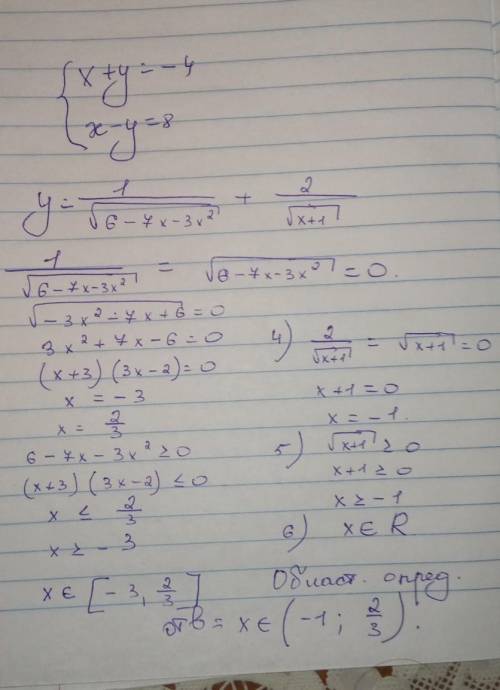 { x+y=-4
x-y=8
y = 1/√(6-7x-3x²) + 2/√(x+1)
1/√(6-7x-3x²) = √(6-7x-3x²) = 0.
√(-3x²-7x+6) = 0
3x²+7x-6=0
(x+3)(3x-2)=0
x = -3
x = 2/3
6-7x-3x² ≥ 0
(x+3)(3x-2) ≤ 0
x ≤ 2/3
x ≥ -3
x ∈ [-3, 2/3]
4) 2/√(x+1) = √(x+1) = 0
x+1=0
x=-1.
5) √(x+1) ≥ 0
x+1 ≥ 0
x ≥ -1
6) x ∈ R
Област. опред.
отв = x ∈ (-1; 2/3).